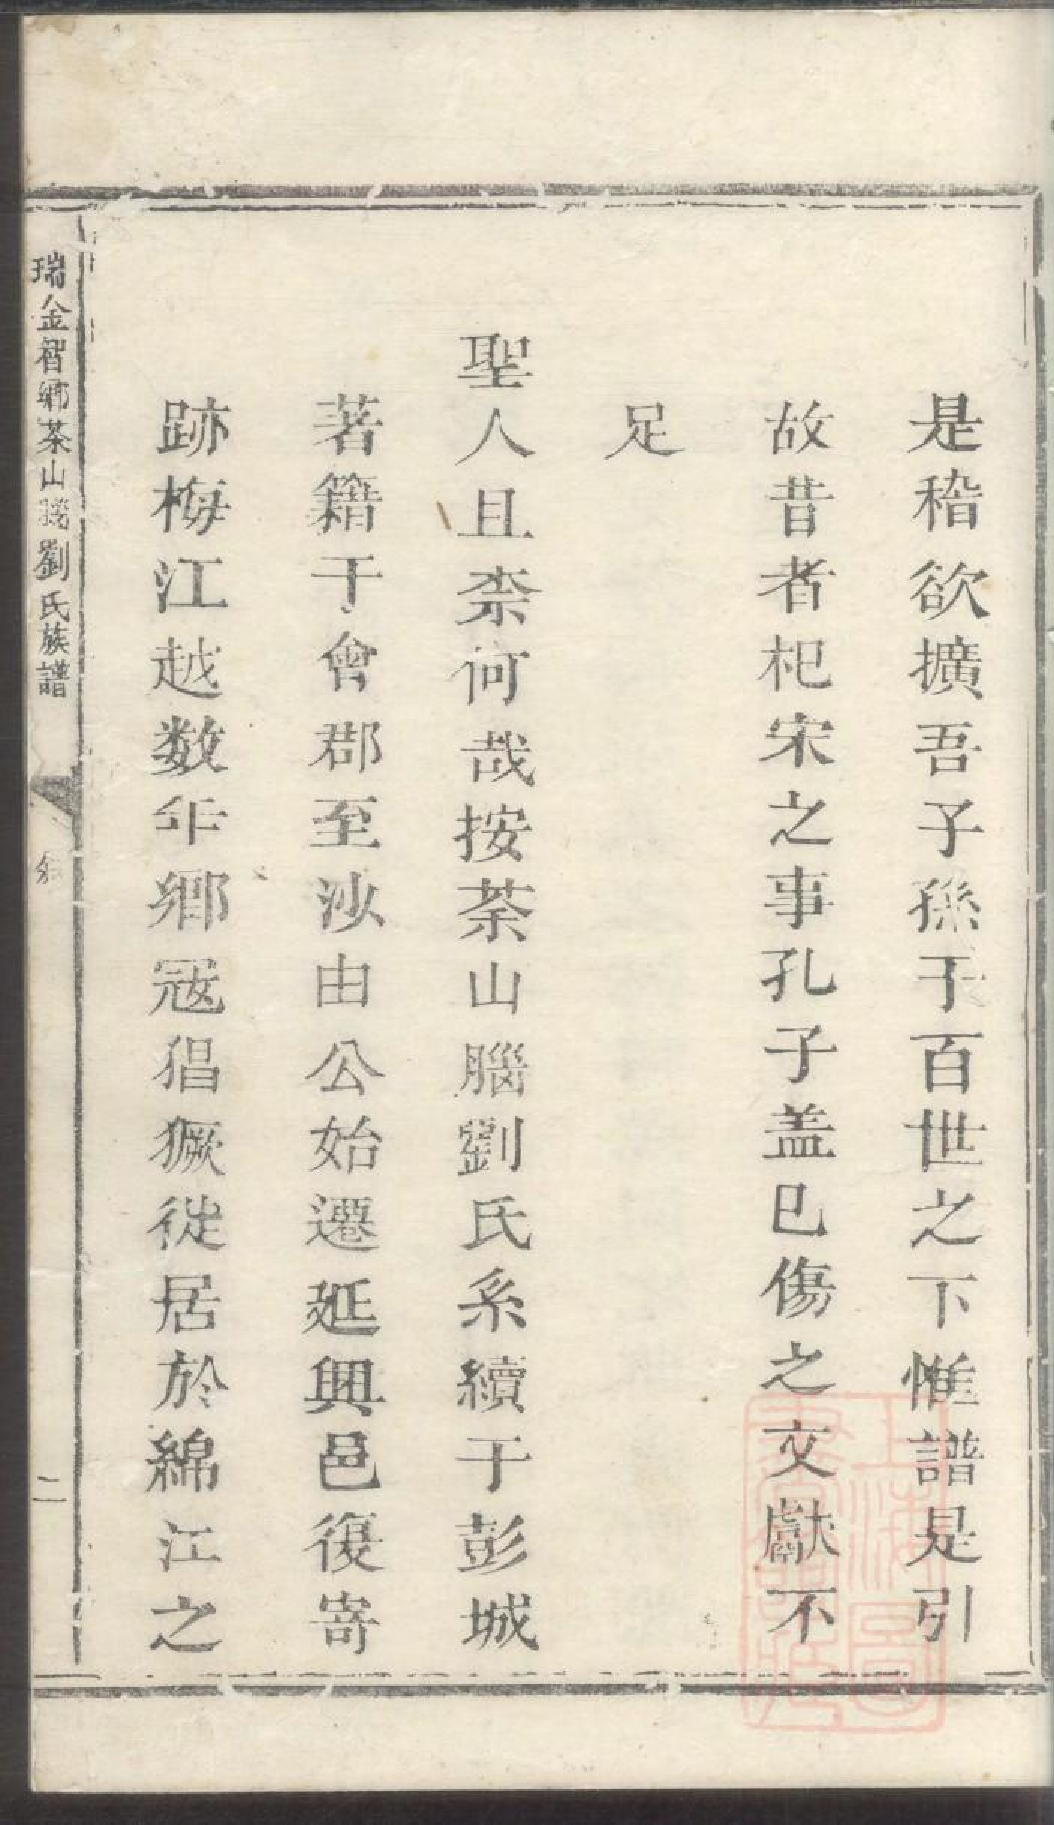 是稽欲擴吾子孫于百世之下惟譜是引
故昔者杞宋之事孔子盖已傷之文獻不
足
聖人且柰何哉按茶山腦劉氏系續于彭城
著籍于會郡至沙由公始遷延興邑復寄
跡梅江越数年鄉冦猖獗徙居於綿江之
瑞金智鄉茶山腦劉氏族譜
敘
二
上海圖
書館藏